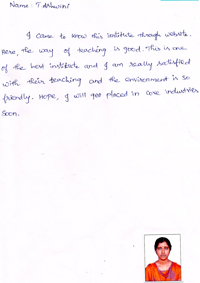 Name : T. Ashwini
I came to know this institute through website.
Here, the way of teaching is good. This is one
of the best institute and I am really satisfied
with their teaching and the environment is so
friendly. Hope, I will get placed in core industries
soon.